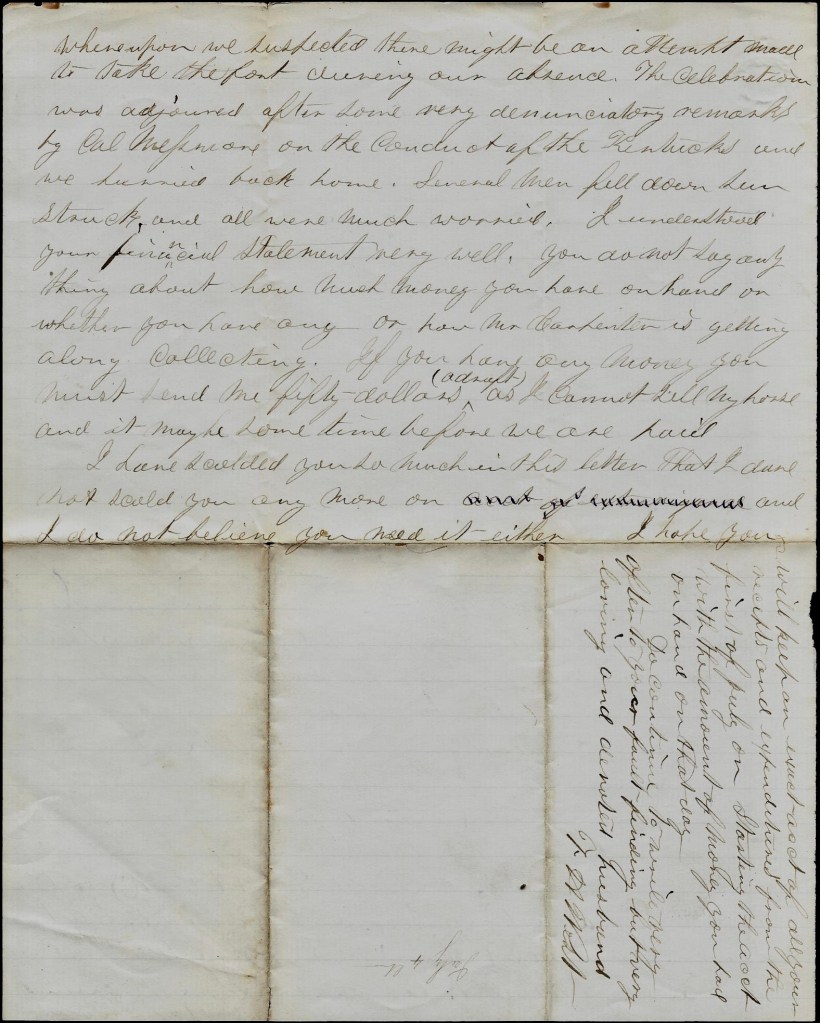 whereupon we suspected there might be an attempt made
to take the font during our absence. The celebration
was adjoured after some very denunciatory remarks
by Col Messmore on the conduct of the Kentucks and
we hurried back home. Several men fell down sun
struck, and all were much worried. I understood
your finincial statement very well, you do not say any
thing about how much money you have on hand or
whether you have any or how Mr Carpenter is getting
along collecting. If you have any money you
must send me fifty dollars (a draft) as I cannot sell my horse
and it may be some time before we are paid
I have scolded you so much in this letter that I dare
not scold you any more on and
I do not believe you need it either I hope you
will keep an exact acct of all your
recipts and expenditures from the
first of July on Starting the acct
with the amount of money you had
on hand on that day
Do continue to write very
often to your fault finding but very
loving and devoted husband
July 4th